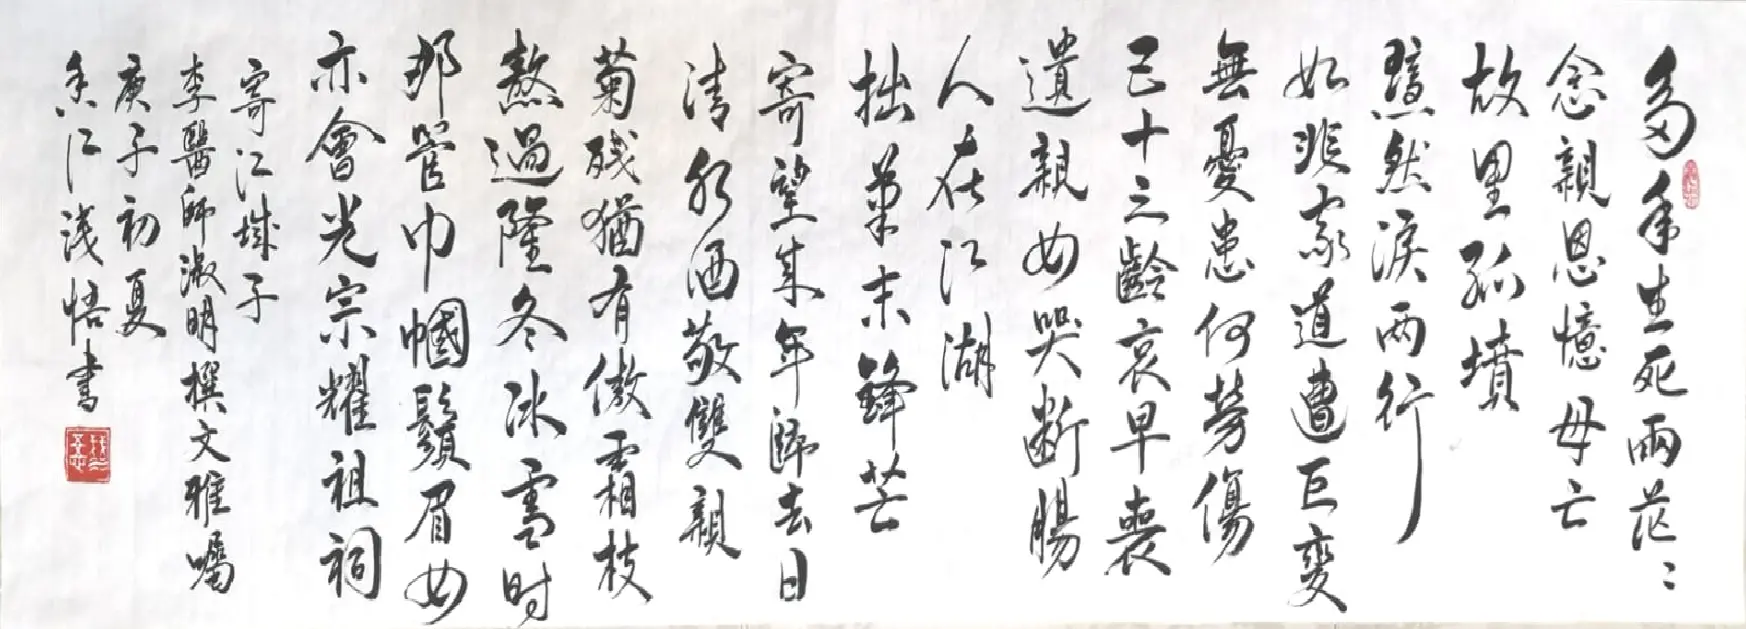 多年生死兩茫茫
念親恩憶母亡
故里孤墳
黯然淚兩行
如非家道遭巨變
無憂患何勞傷
已十三齡哀早喪
遺親女哭斷腸
人在江湖
拙筆末鋒芒
寄望來年歸去日
清水酒敬雙親
菊殘猶有傲霜枝
熬過隆冬冰雪时
那管巾幗鬚眉女
亦會光宗耀祖祠
寄江城子
李醫師淑明撰文雅囑
庚子初夏
浅悟書